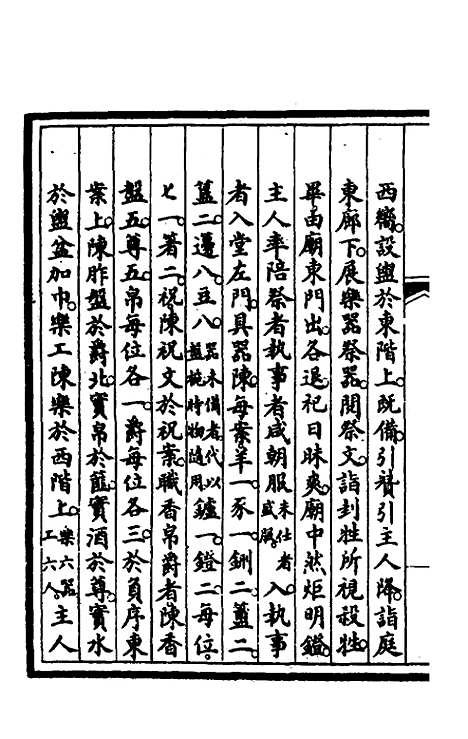 西嚮。設盥於東階上。既備。引贊引主人降。詣庭
東廊下。展樂器祭器。閱祭文。詣封牲所視殺牲。
畢。由廟東門出。各退。祀日昧爽。廟中然炬明鐙。
主人率陪祭者執事者咸朝服未仕者盛服。入。執事
者入堂左門。具器陳。每案羊一。豕一。鉶二。簠二。
簋二。籩八。豆八器未備者代以盤椀時物隨用。鑪一。鐙二。每位。
匕一。箸二。祝陳祝文於祝案。職香帛爵者陳香
盤五。尊五。帛每位各一。爵每位各三。於負序東
案上。陳胙盤於爵北。實帛於篚。實酒於尊。實水
於盥盆加巾。樂工陳樂於西階上。樂六器工六人。主人